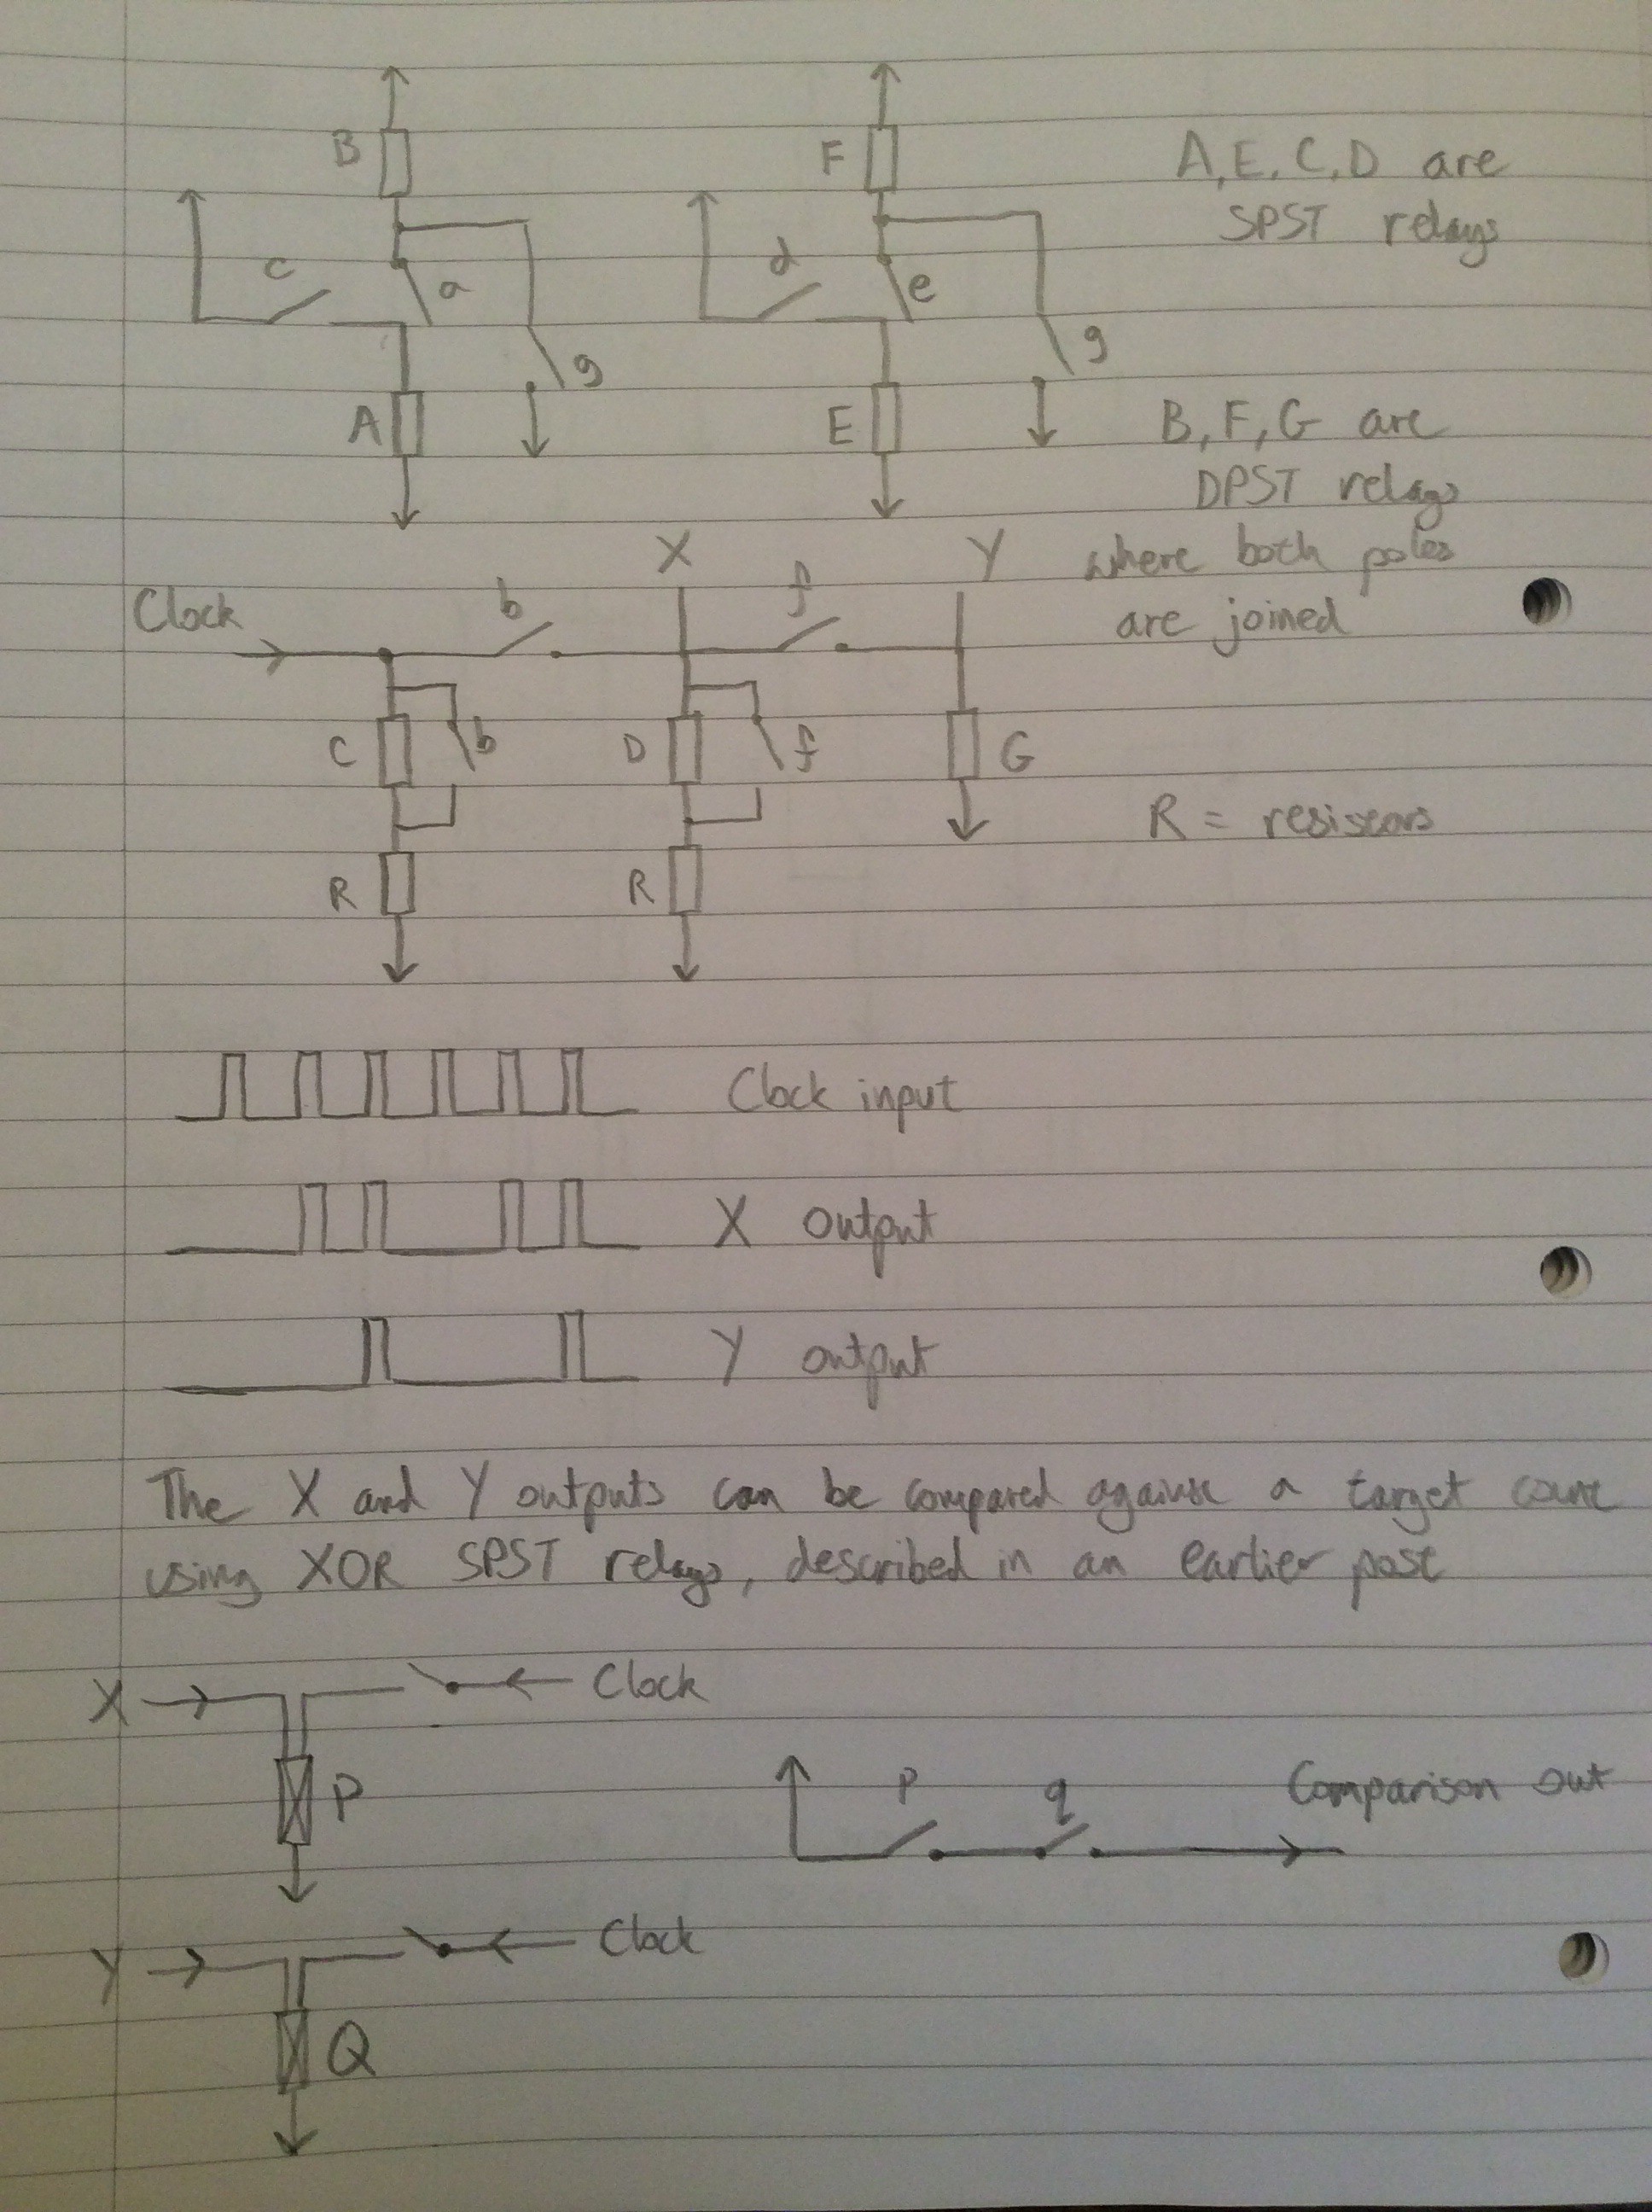 B
F
A, E, C, D are
SPST relays
c
a
d
e
g
g
A
E
B, F, G are
DPST relays
X
Y
where both poles
are joined
Clock
b
f
C
b
D
f
G
R
R
R = resistors
Clock input
X output
Y output
The X and Y outputs can be compared against a target count
using XOR SPST relays, described in an earlier post
X
Clock
P
p
q
Comparison out
Y
Clock
Q